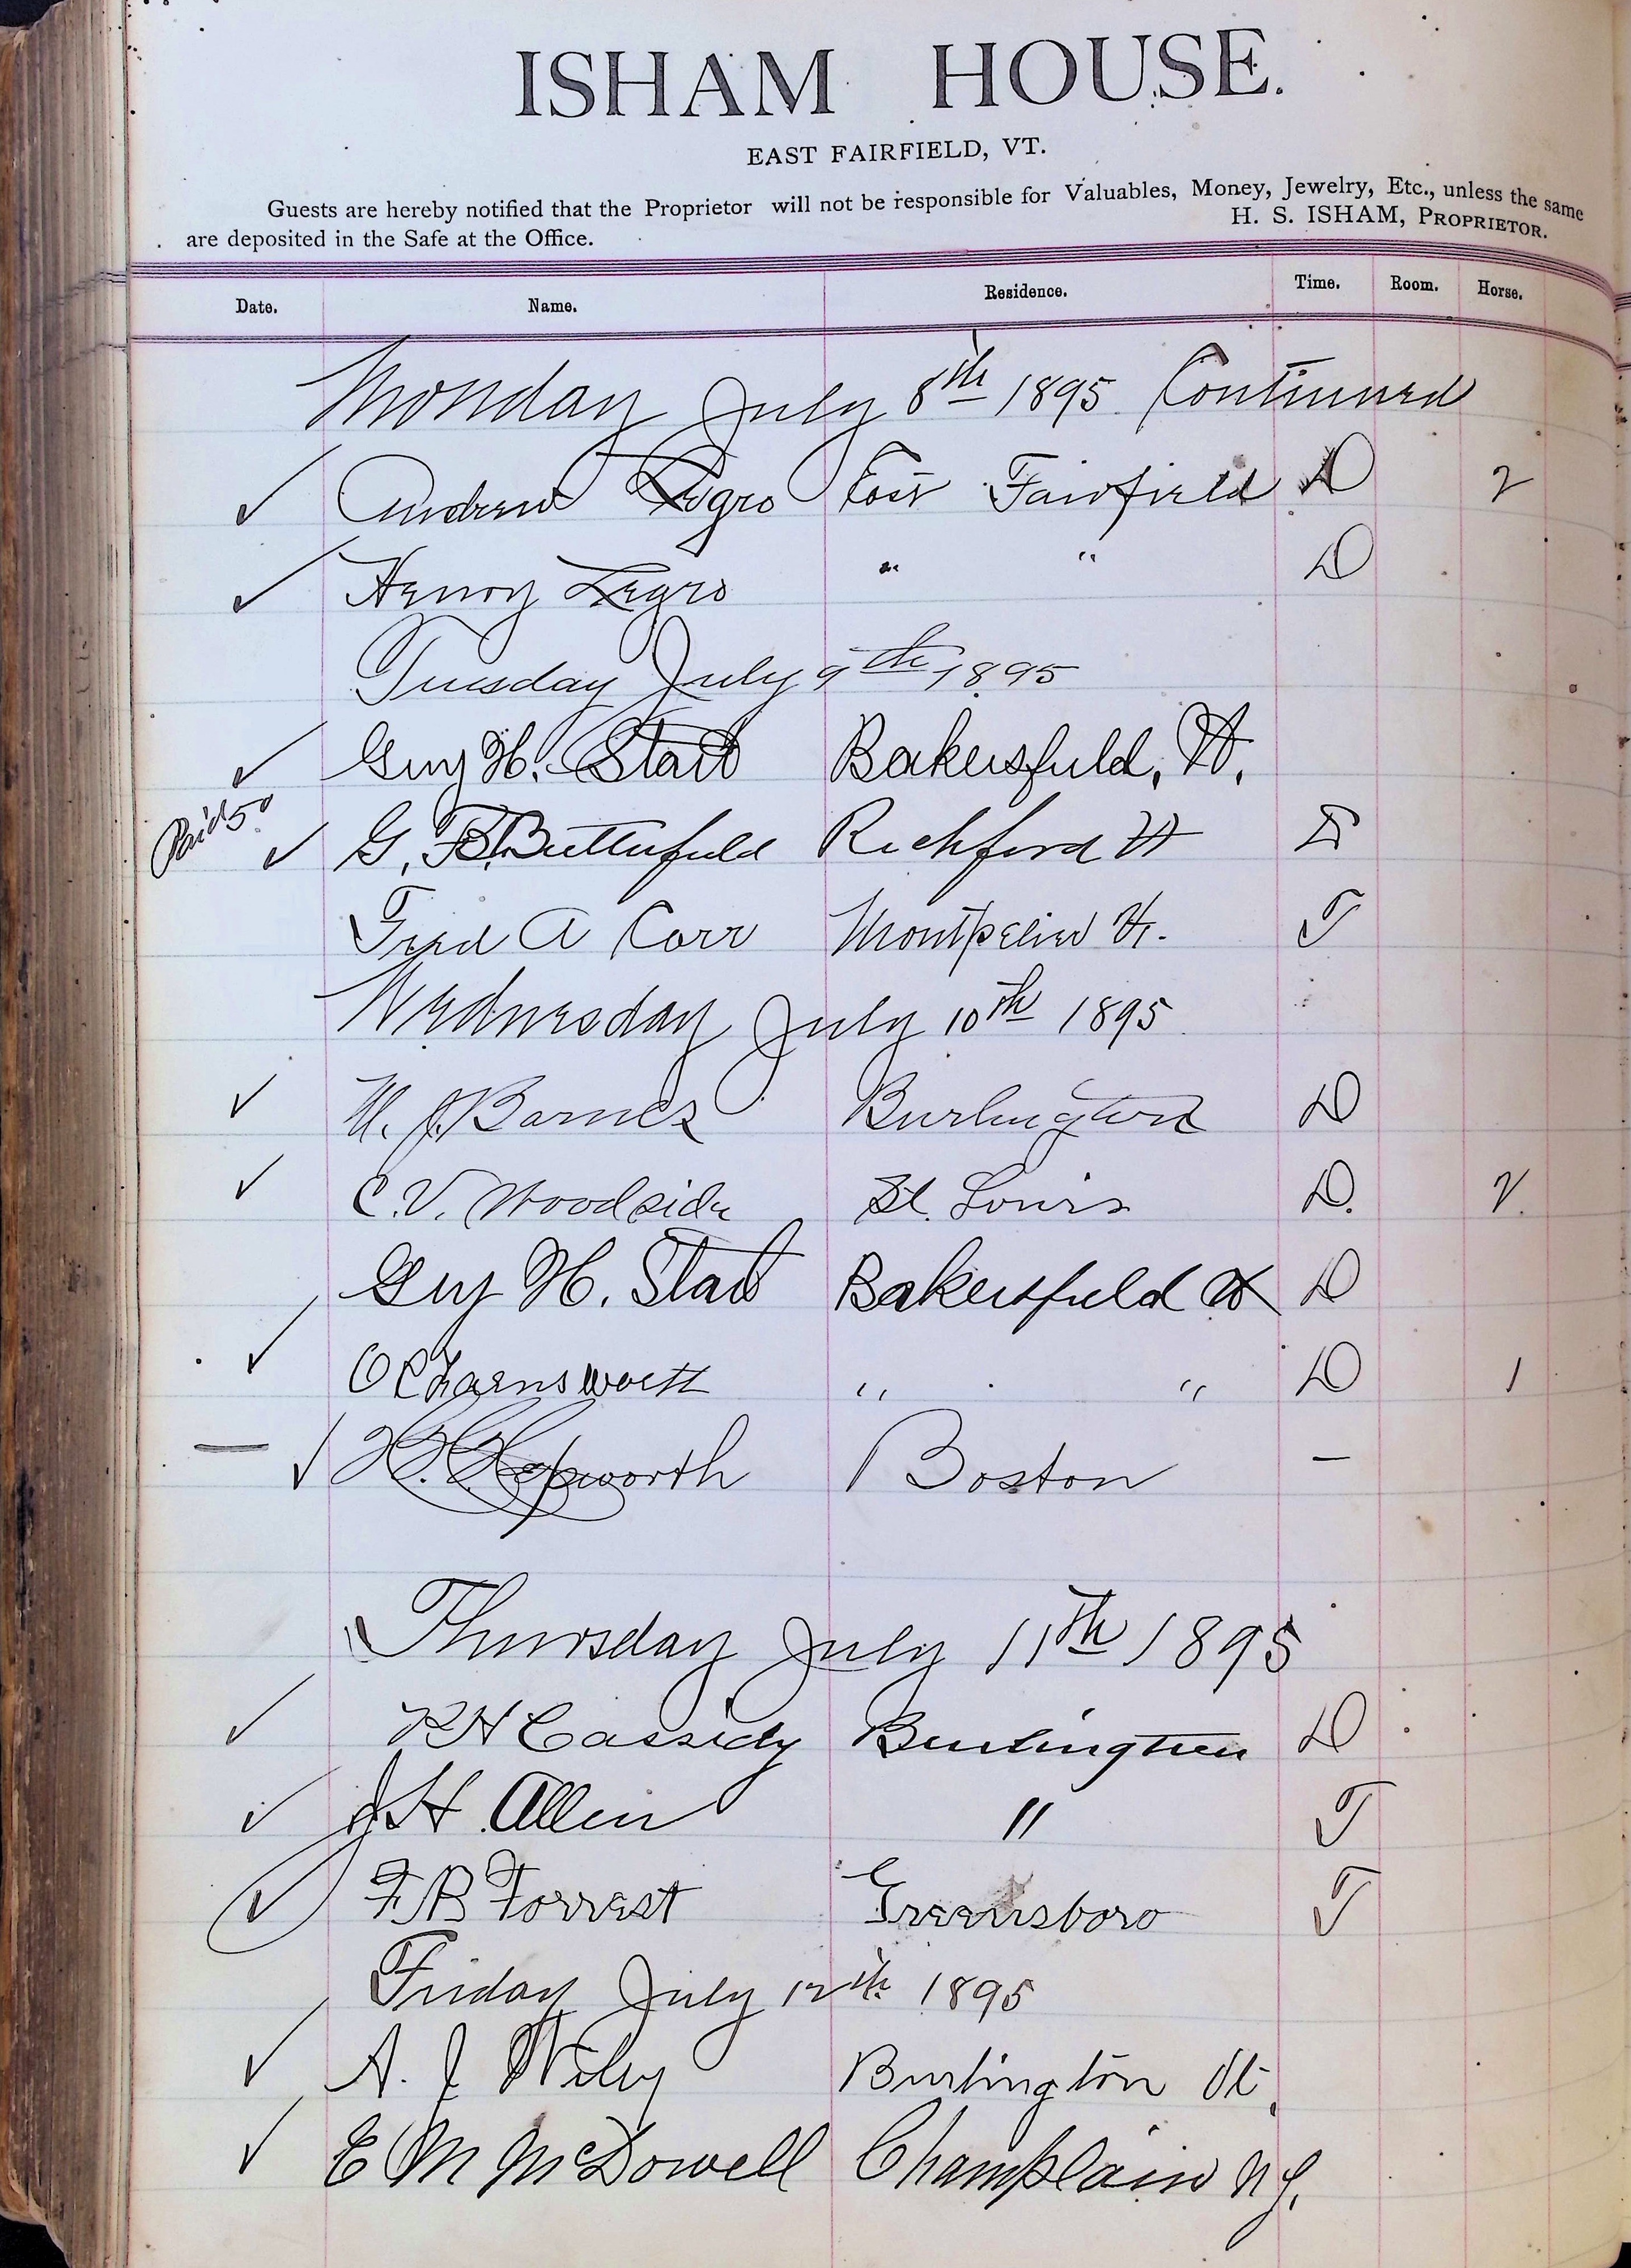 ISHAM HOUSE.
EAST FAIRFIELD, VT.
Guests are hereby notified that the Proprietor will not be responsible for Valuables, Money, Jewelry, Etc., unless the same
are deposited in the Safe at the Office. H. S. ISHAM, PROPRIETOR.
Date. Name. Residence. Time. Room. Horse.
Monday July 8th 1895 Continued
✓ Andrew Legro East Fairfield D 2
✓ Henry Legro " " D
Tuesday July 9th 1895
✓ Guy H. Start Bakersfield, Vt.
Paid 50 ✓ G. B. Butterfield Richford Vt
Fred A Carr Montpelier Vt. T
Wednesday July 10th 1895
✓ W. J. Barnes Burlington D
✓ C. V. Woodside St. Louis D. 2.
Guy H. Start Bakersfield Vt D
✓ O C Farnsworth " " D 1
— ✓ Hepworth Boston —
Thursday July 11th 1895
✓ R H Cassidy Burlington D
✓ J H Allen " T
✓ F. B Forrest Greensboro T
Friday July 12th 1895
✓ A. J Wiley Burlington Vt.
✓ E M McDowell Champlain N Y.